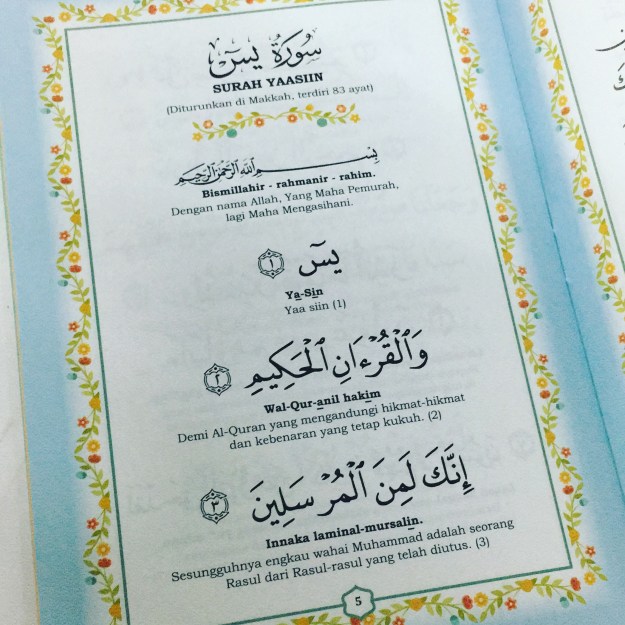 سُورَةُ يسٓ
SURAH YAASIIN
(Diturunkan di Makkah, terdiri 83 ayat)
بِسْمِ ٱللَّهِ ٱلرَّحْمَٰنِ ٱلرَّحِيمِ
Bismillahir - rahmanir - rahim.
Dengan nama Allah, Yang Maha Pemurah,
lagi Maha Mengasihani.
يسٓ ١
Ya-Sin
Yaa siin (1)
وَٱلْقُرْءَانِ ٱلْحَكِيمِ ٢
Wal-Qur-anil hakim
Demi Al-Quran yang mengandungi hikmat-hikmat
dan kebenaran yang tetap kukuh. (2)
إِنَّكَ لَمِنَ ٱلْمُرْسَلِينَ ٣
Innaka laminal-mursalin.
Sesungguhnya engkau wahai Muhammad adalah seorang
Rasul dari Rasul-rasul yang telah diutus. (3)
5